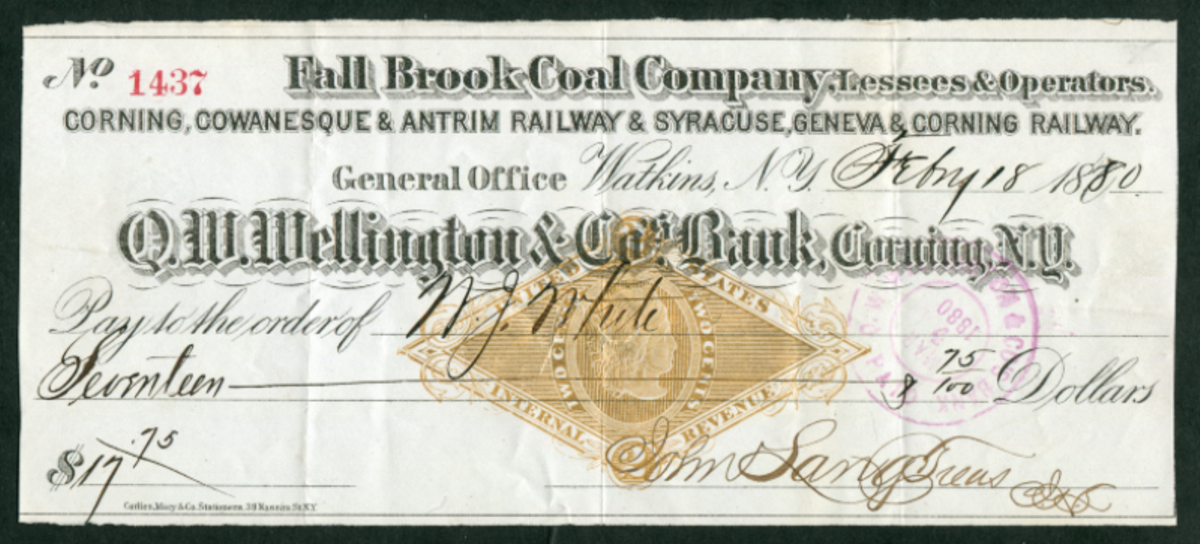 No. 1437 Fall Brook Coal Company, Lessees & Operators.
CORNING, COWANESQUE & ANTRIM RAILWAY & SYRACUSE, GENEVA & CORNING RAILWAY.
General Office Watkins, N.Y. Febry 18 1880.
Q.W. Wellington & Co's. Bank, Corning, N.Y.
Pay to the order of W. J. White
Seventeen & 75/100 Dollars
$17.75
John Lang Treas
UNITED STATES
INTERNAL REVENUE
TWO CENTS
TWO CENTS
1880
PAID
BANK
Nassau St. N.Y.